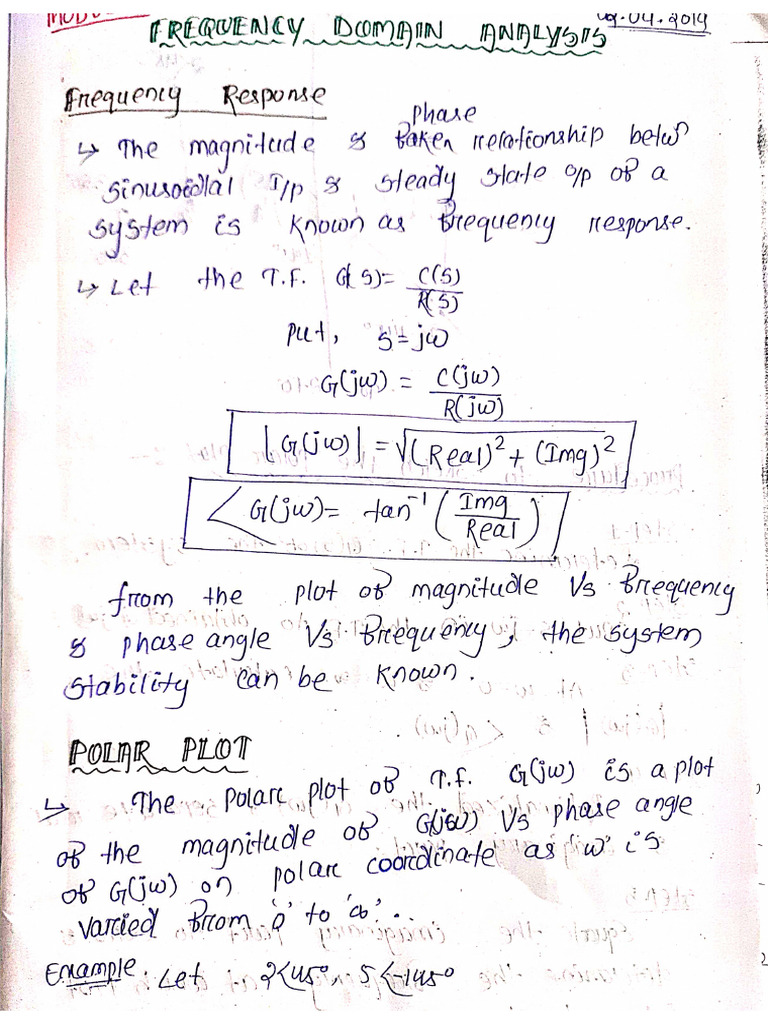 FREQUENCY DOMAIN ANALYSIS
.04.2019
Frequency Response
phase
↳ The magnitude & taken relationship betwⁿ
sinusoidal I/p & steady state o/p of a
system is known as frequency response.
↳ Let the T.F. G(s) = C(S)/R(S)
put, s = jω
G(jω) = C(jω)/R(jω)
|G(jω)| = √(Real)² + (Img)²
∠G(jω) = tan⁻¹ (Img/Real)
from the plot of magnitude Vs frequency
& phase angle Vs frequency, the system
stability can be known.
POLAR PLOT
↳ The Polar plot of T.F. G(jω) is a plot
of the magnitude of G(jω) Vs phase angle
of G(jω) on polar coordinate as 'ω' is
varied from '0' to '∞'..
Example. Let 2∠45°, 5∠-145°